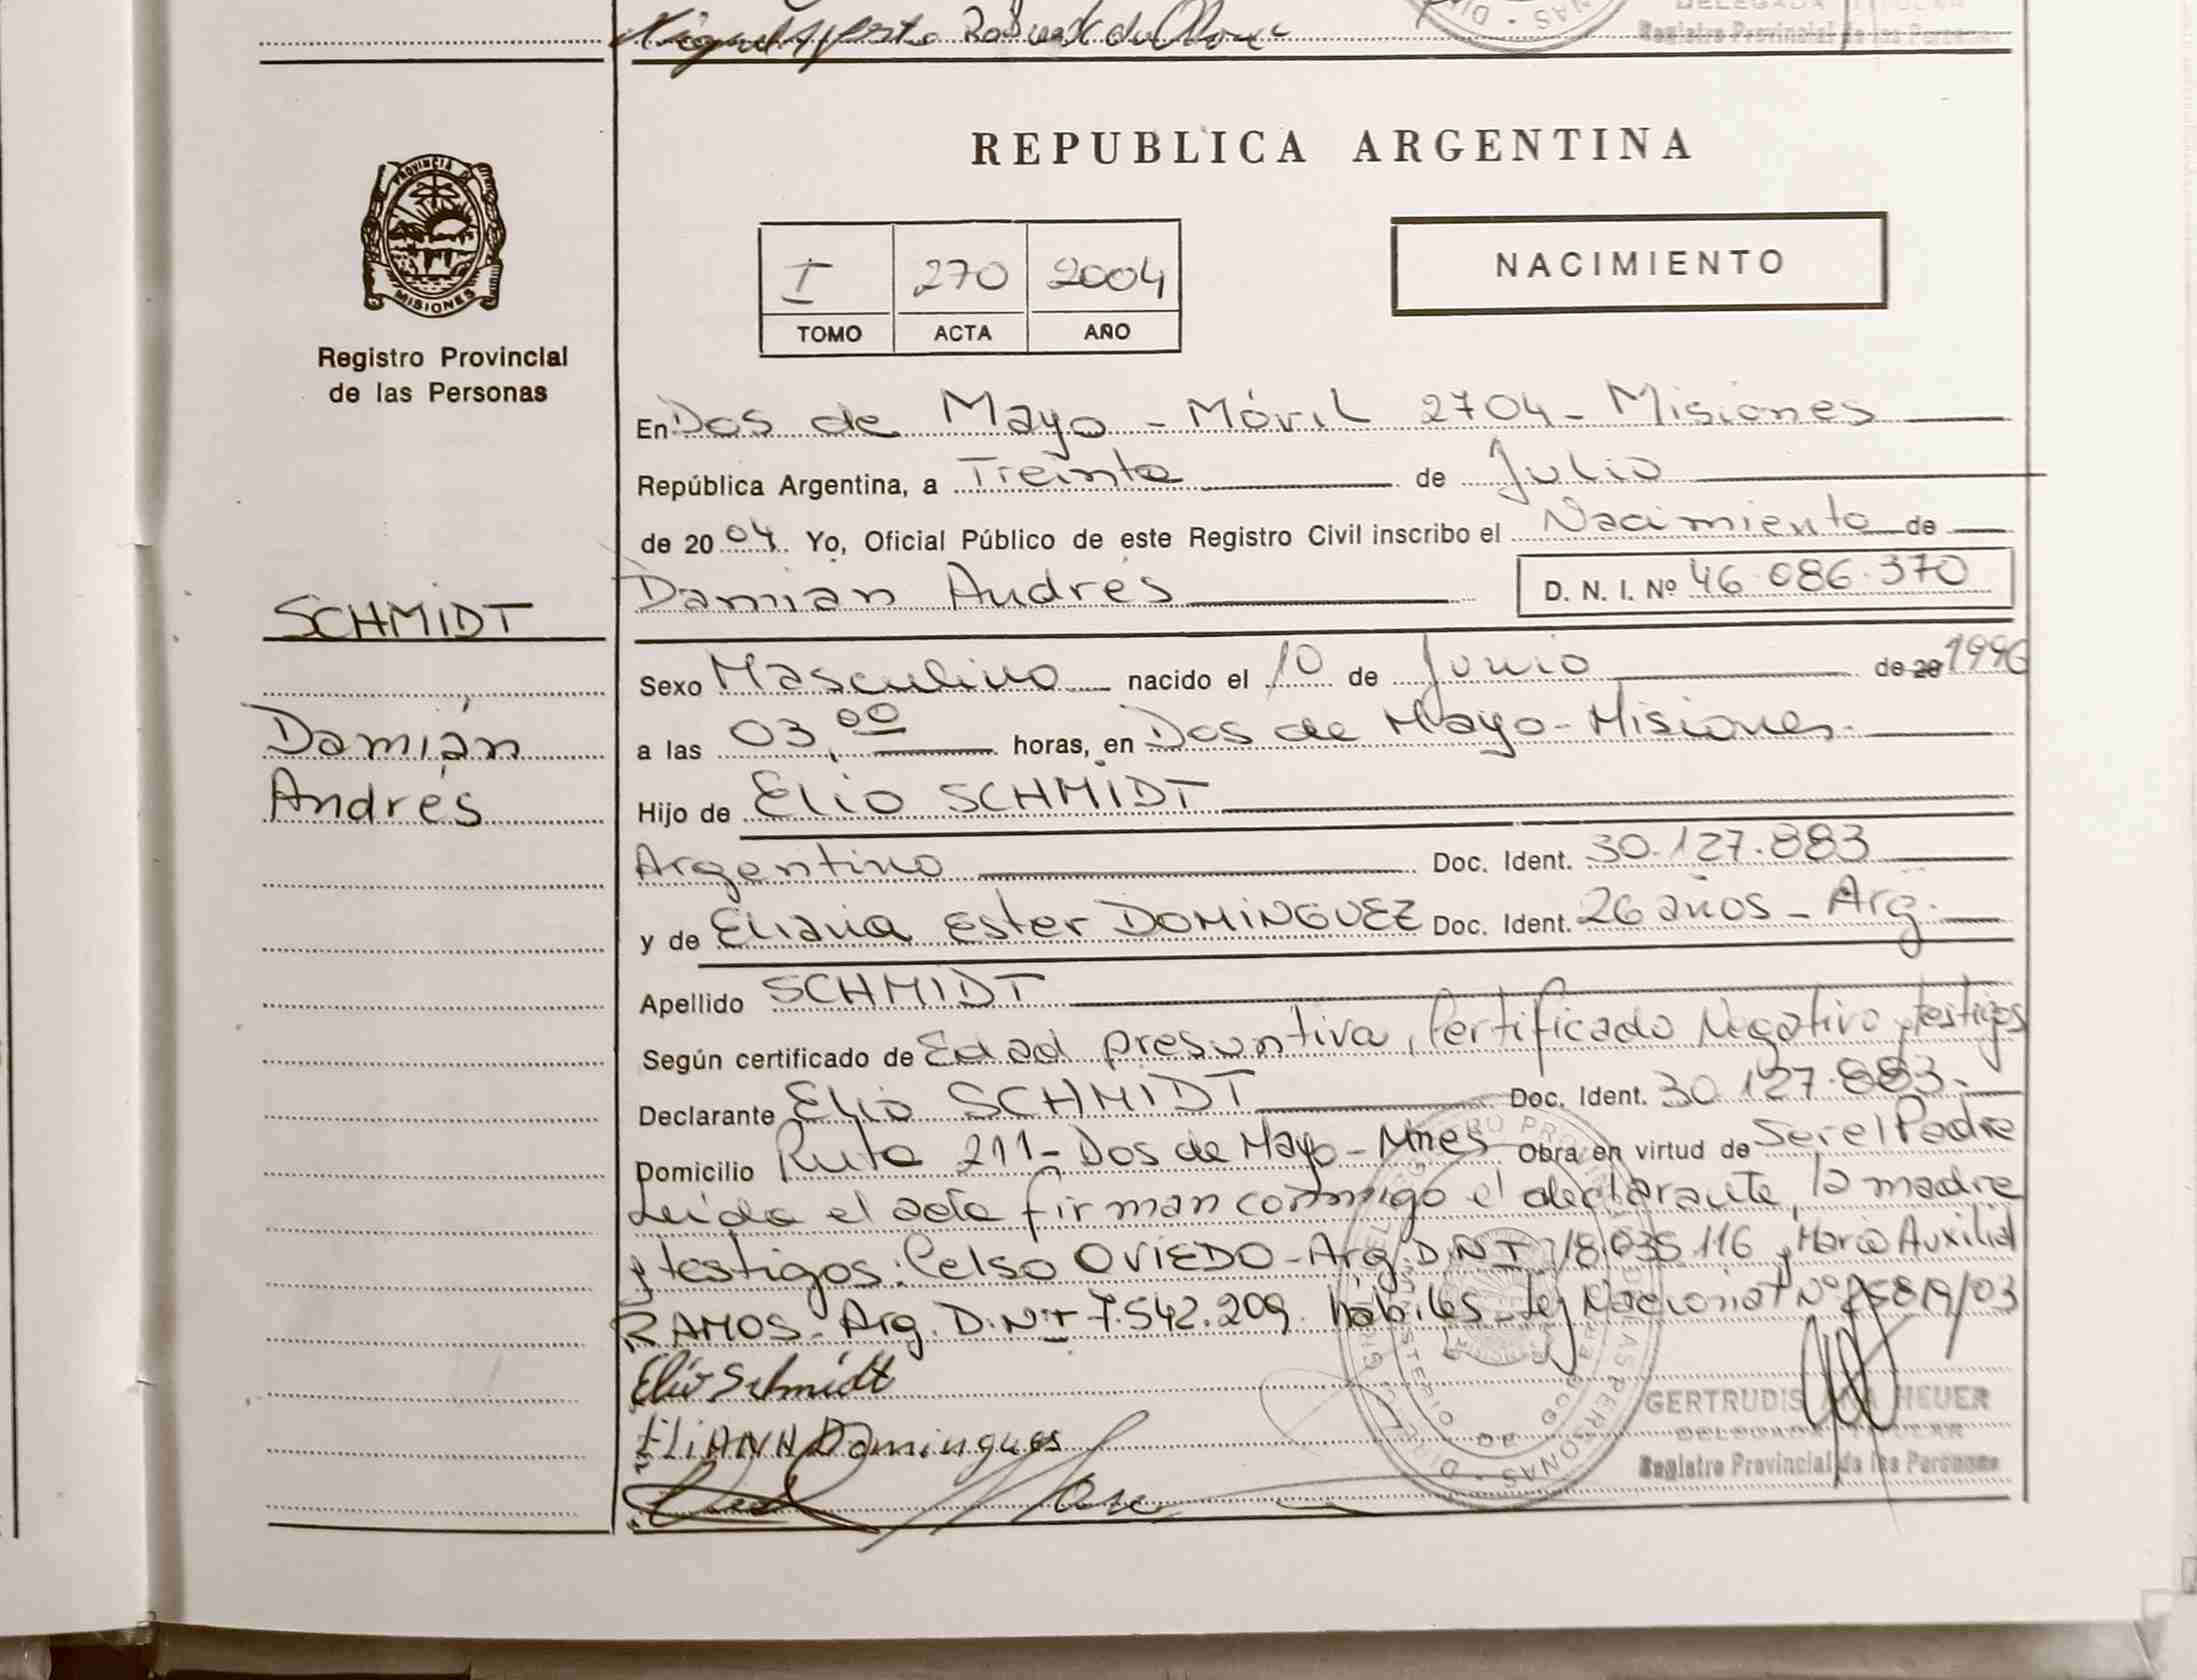 DELEGADA TITULAR
Registro Provincial de las Personas
PROVINCIA DE
MISIONES
Registro Provincial
de las Personas
SCHMIDT
Damián
Andrés
REPUBLICA ARGENTINA
I 270 2004
TOMO ACTA AÑO
NACIMIENTO
En Dos de Mayo - Móvil 2704 - Misiones
República Argentina, a Treinta de Julio
de 2004. Yo, Oficial Público de este Registro Civil inscribo el Nacimiento de
Damián Andrés D. N. I. Nº 46.086.370
Sexo Masculino nacido el 10 de Junio de 20 1996
a las 03,00 horas, en Dos de Mayo - Misiones.
Hijo de Elio SCHMIDT
Argentino Doc. Ident. 30.127.883
y de Eliana Ester DOMINGUEZ Doc. Ident. 26 años - Arg.
Apellido SCHMIDT
Según certificado de Edad presuntiva, Certificado Negativo y testigos
Declarante Elio SCHMIDT Doc. Ident. 30.127.883.
Domicilio Ruta 211 - Dos de Mayo - Mnes Obra en virtud de Ser el Padre
Leída el acta firman conmigo el declarante, la madre
y testigos: Celso OVIEDO - Arg. D.N.I 18.035.116 y María Auxilia
RAMOS - Arg. D.N.I 7.542.209. hábiles - Ley Nacional Nº 25819/03
Elio Schmidt
ELiANA Domingues
GERTRUDIS HEUER
DELEGADA TITULAR
Registro Provincial de las Personas